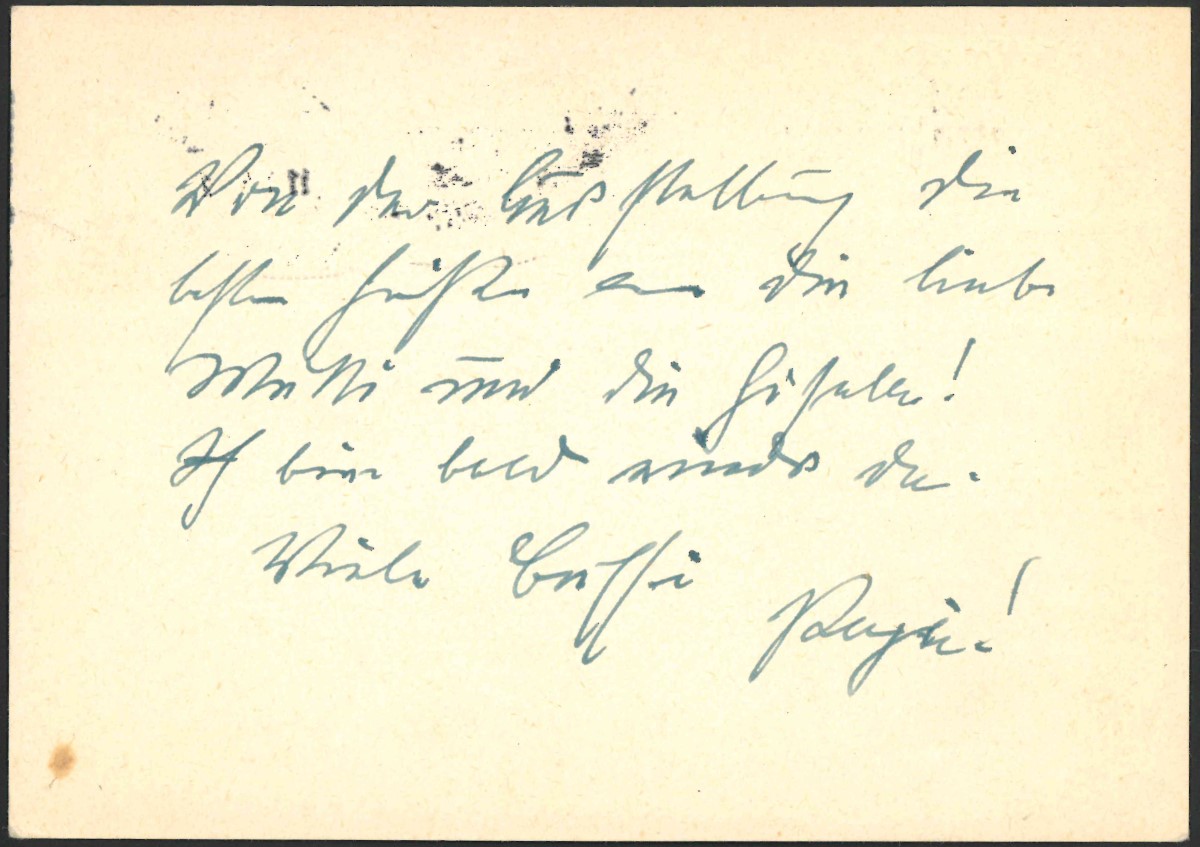 Von der Ausstellung die
besten Grüße an die liebe
Mutti und die Gisela!
Ich bin bald wieder da.
Viele Bussi